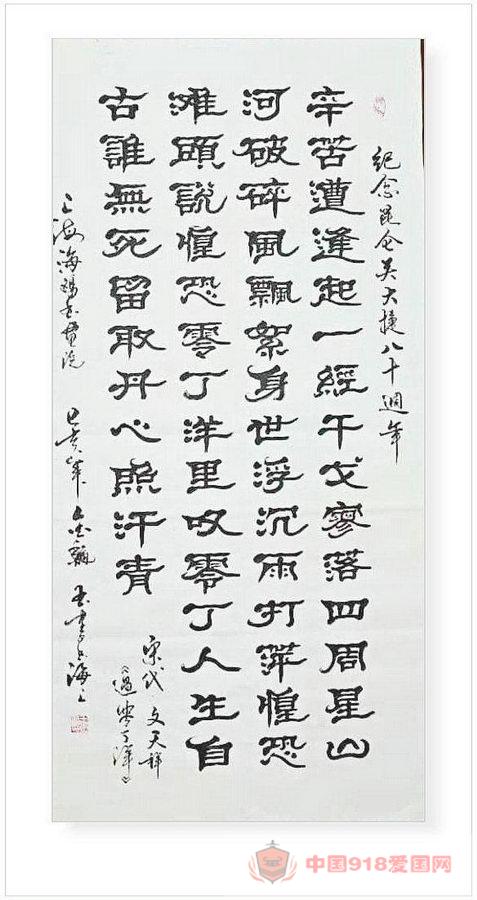 紀念昆仑关大捷八十週年
辛苦遭逢起一經干戈寥落四周星山
河破碎風飄絮身世浮沉雨打萍惶恐
滩頭說惶恐零丁洋里叹零丁人生自
古誰無死留取丹心照汗青
宋代 文天祥
《過零丁洋》
上海海 书画院 己亥年 书 上海
中国918爱国网